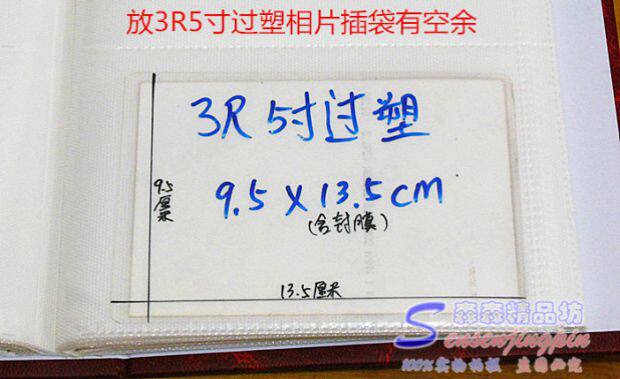 放3R5寸过塑相片插袋有空余
3R 5寸过塑
9.5厘米
9.5 X 13.5CM
(含封膜)
13.5厘米
森森精品坊
Sensenjingpin
100%实物拍摄 盗图必究